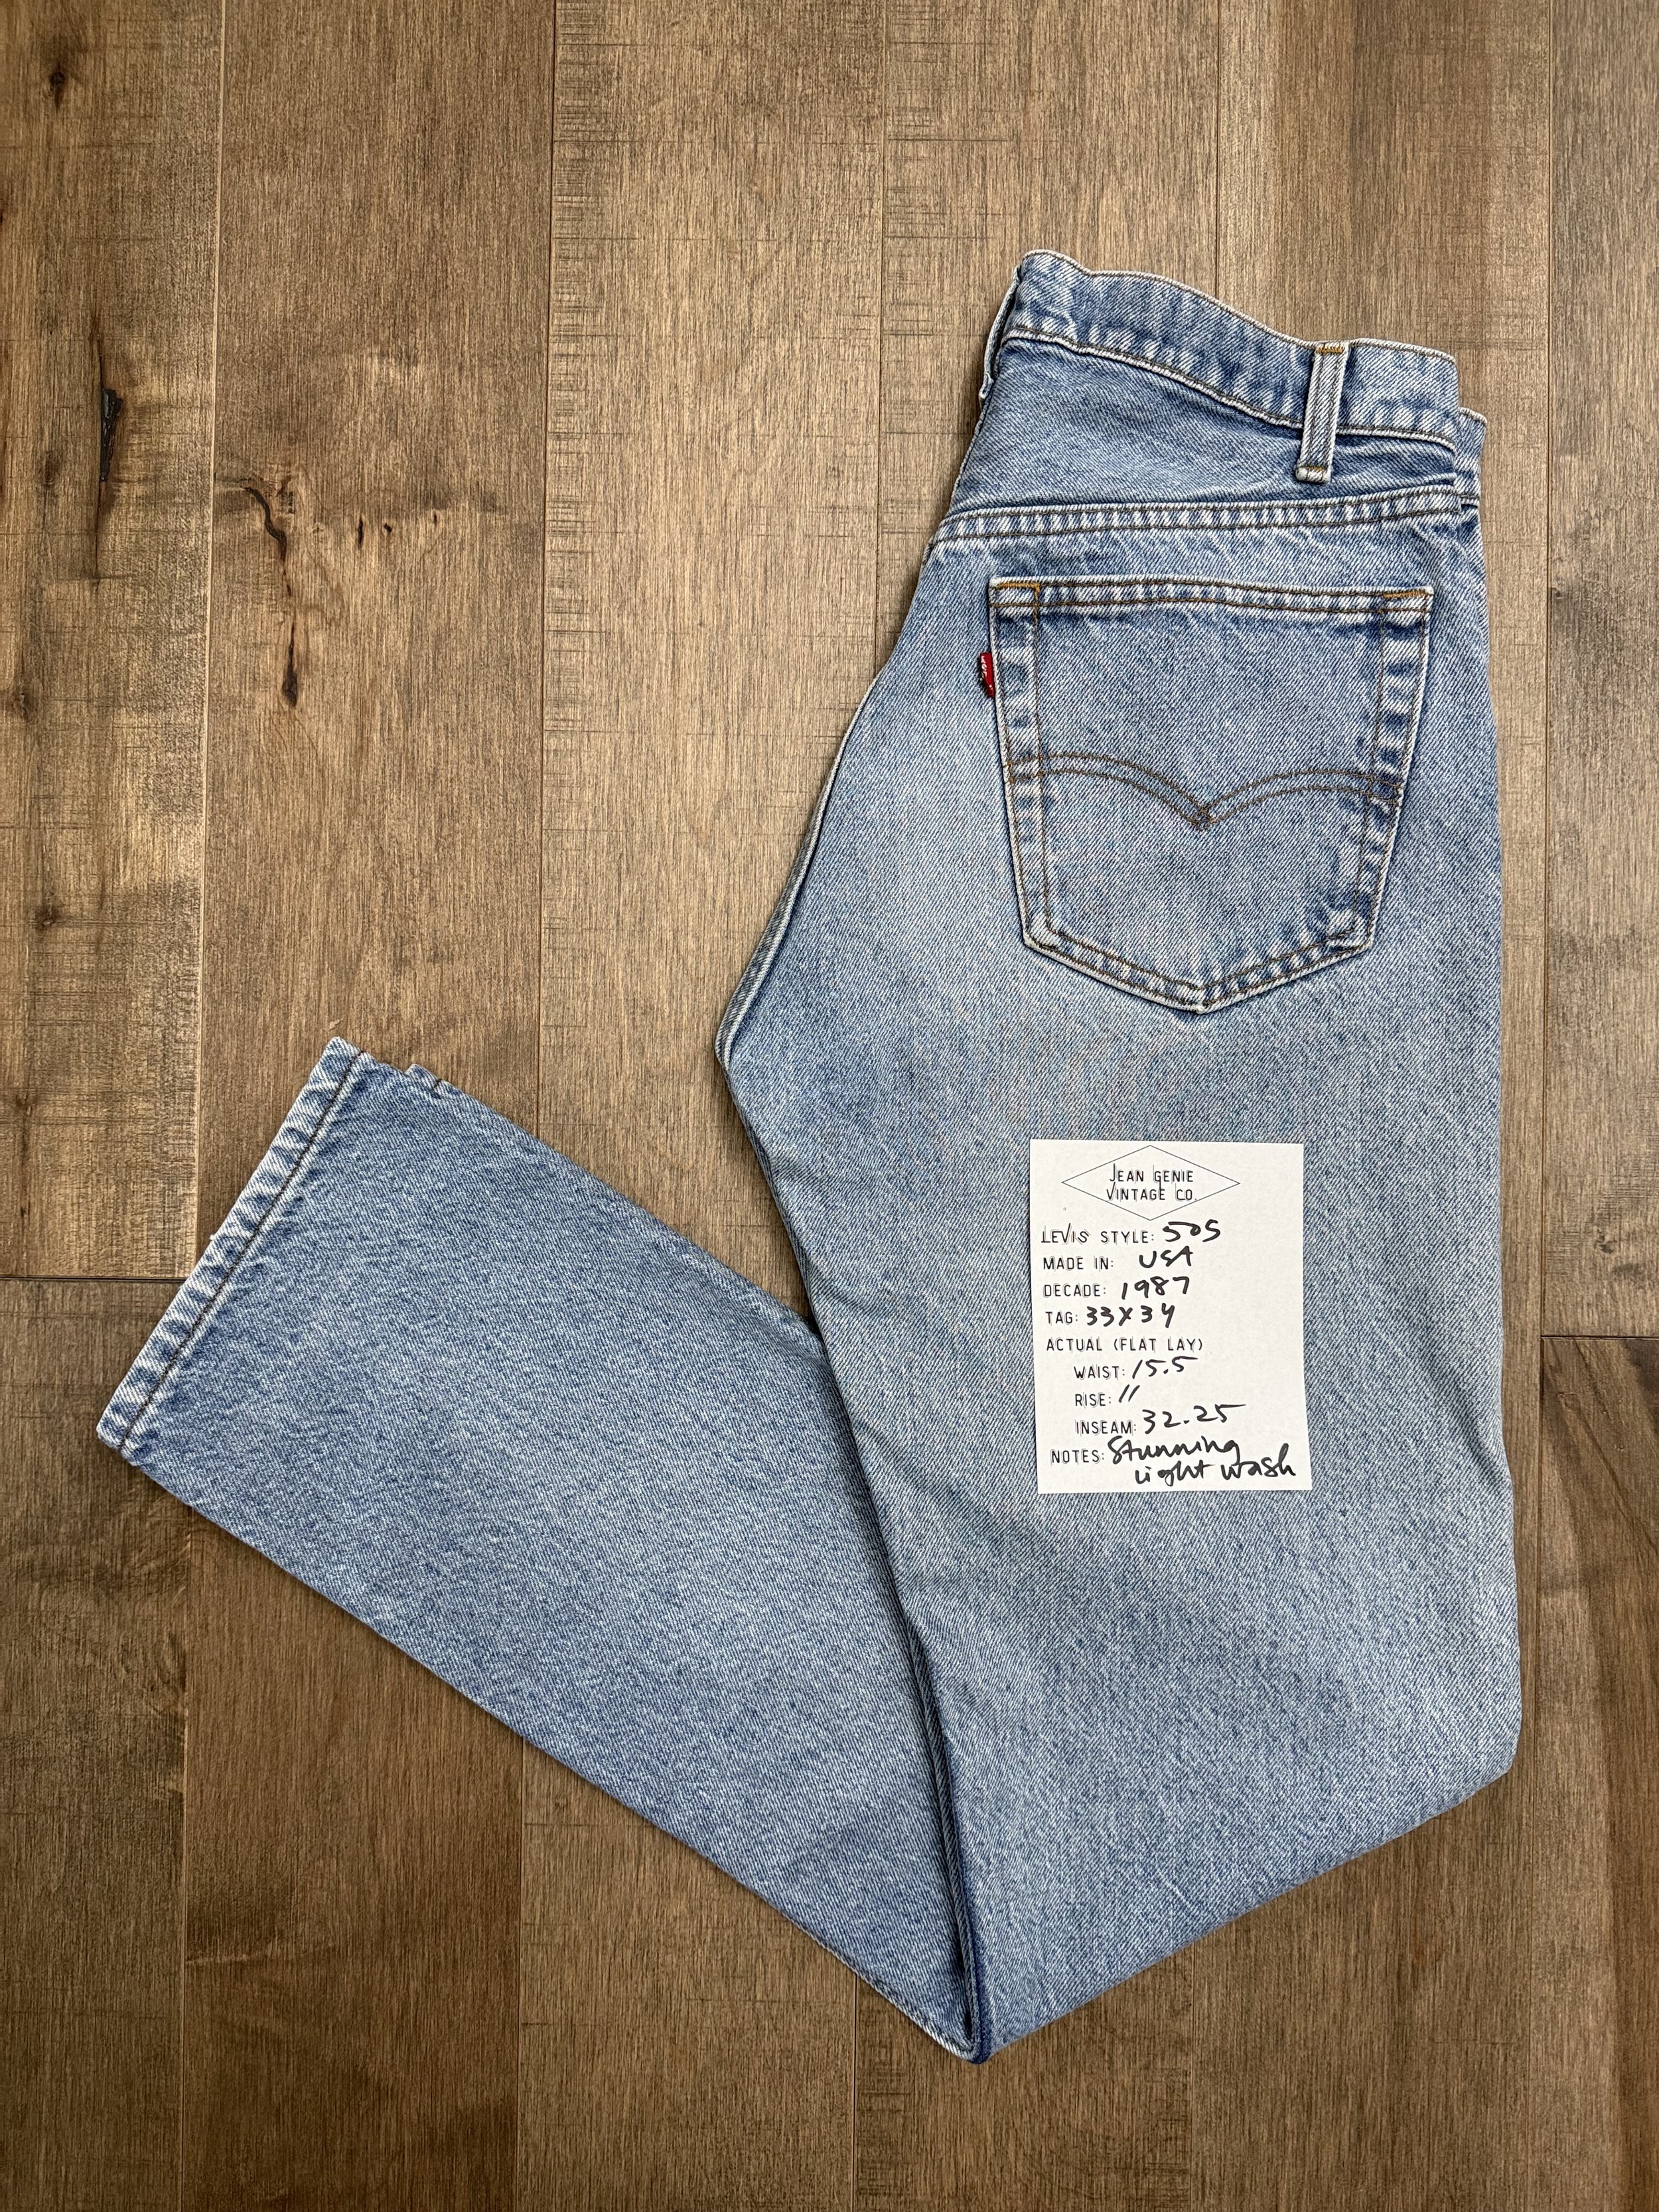 JEAN GENIE
VINTAGE CO.
LEVIS STYLE: 505
MADE IN: USA
DECADE: 1987
TAG: 33X34
ACTUAL (FLAT LAY)
WAIST: 15.5
RISE: 11
INSEAM: 32.25
NOTES: Stunning
light wash